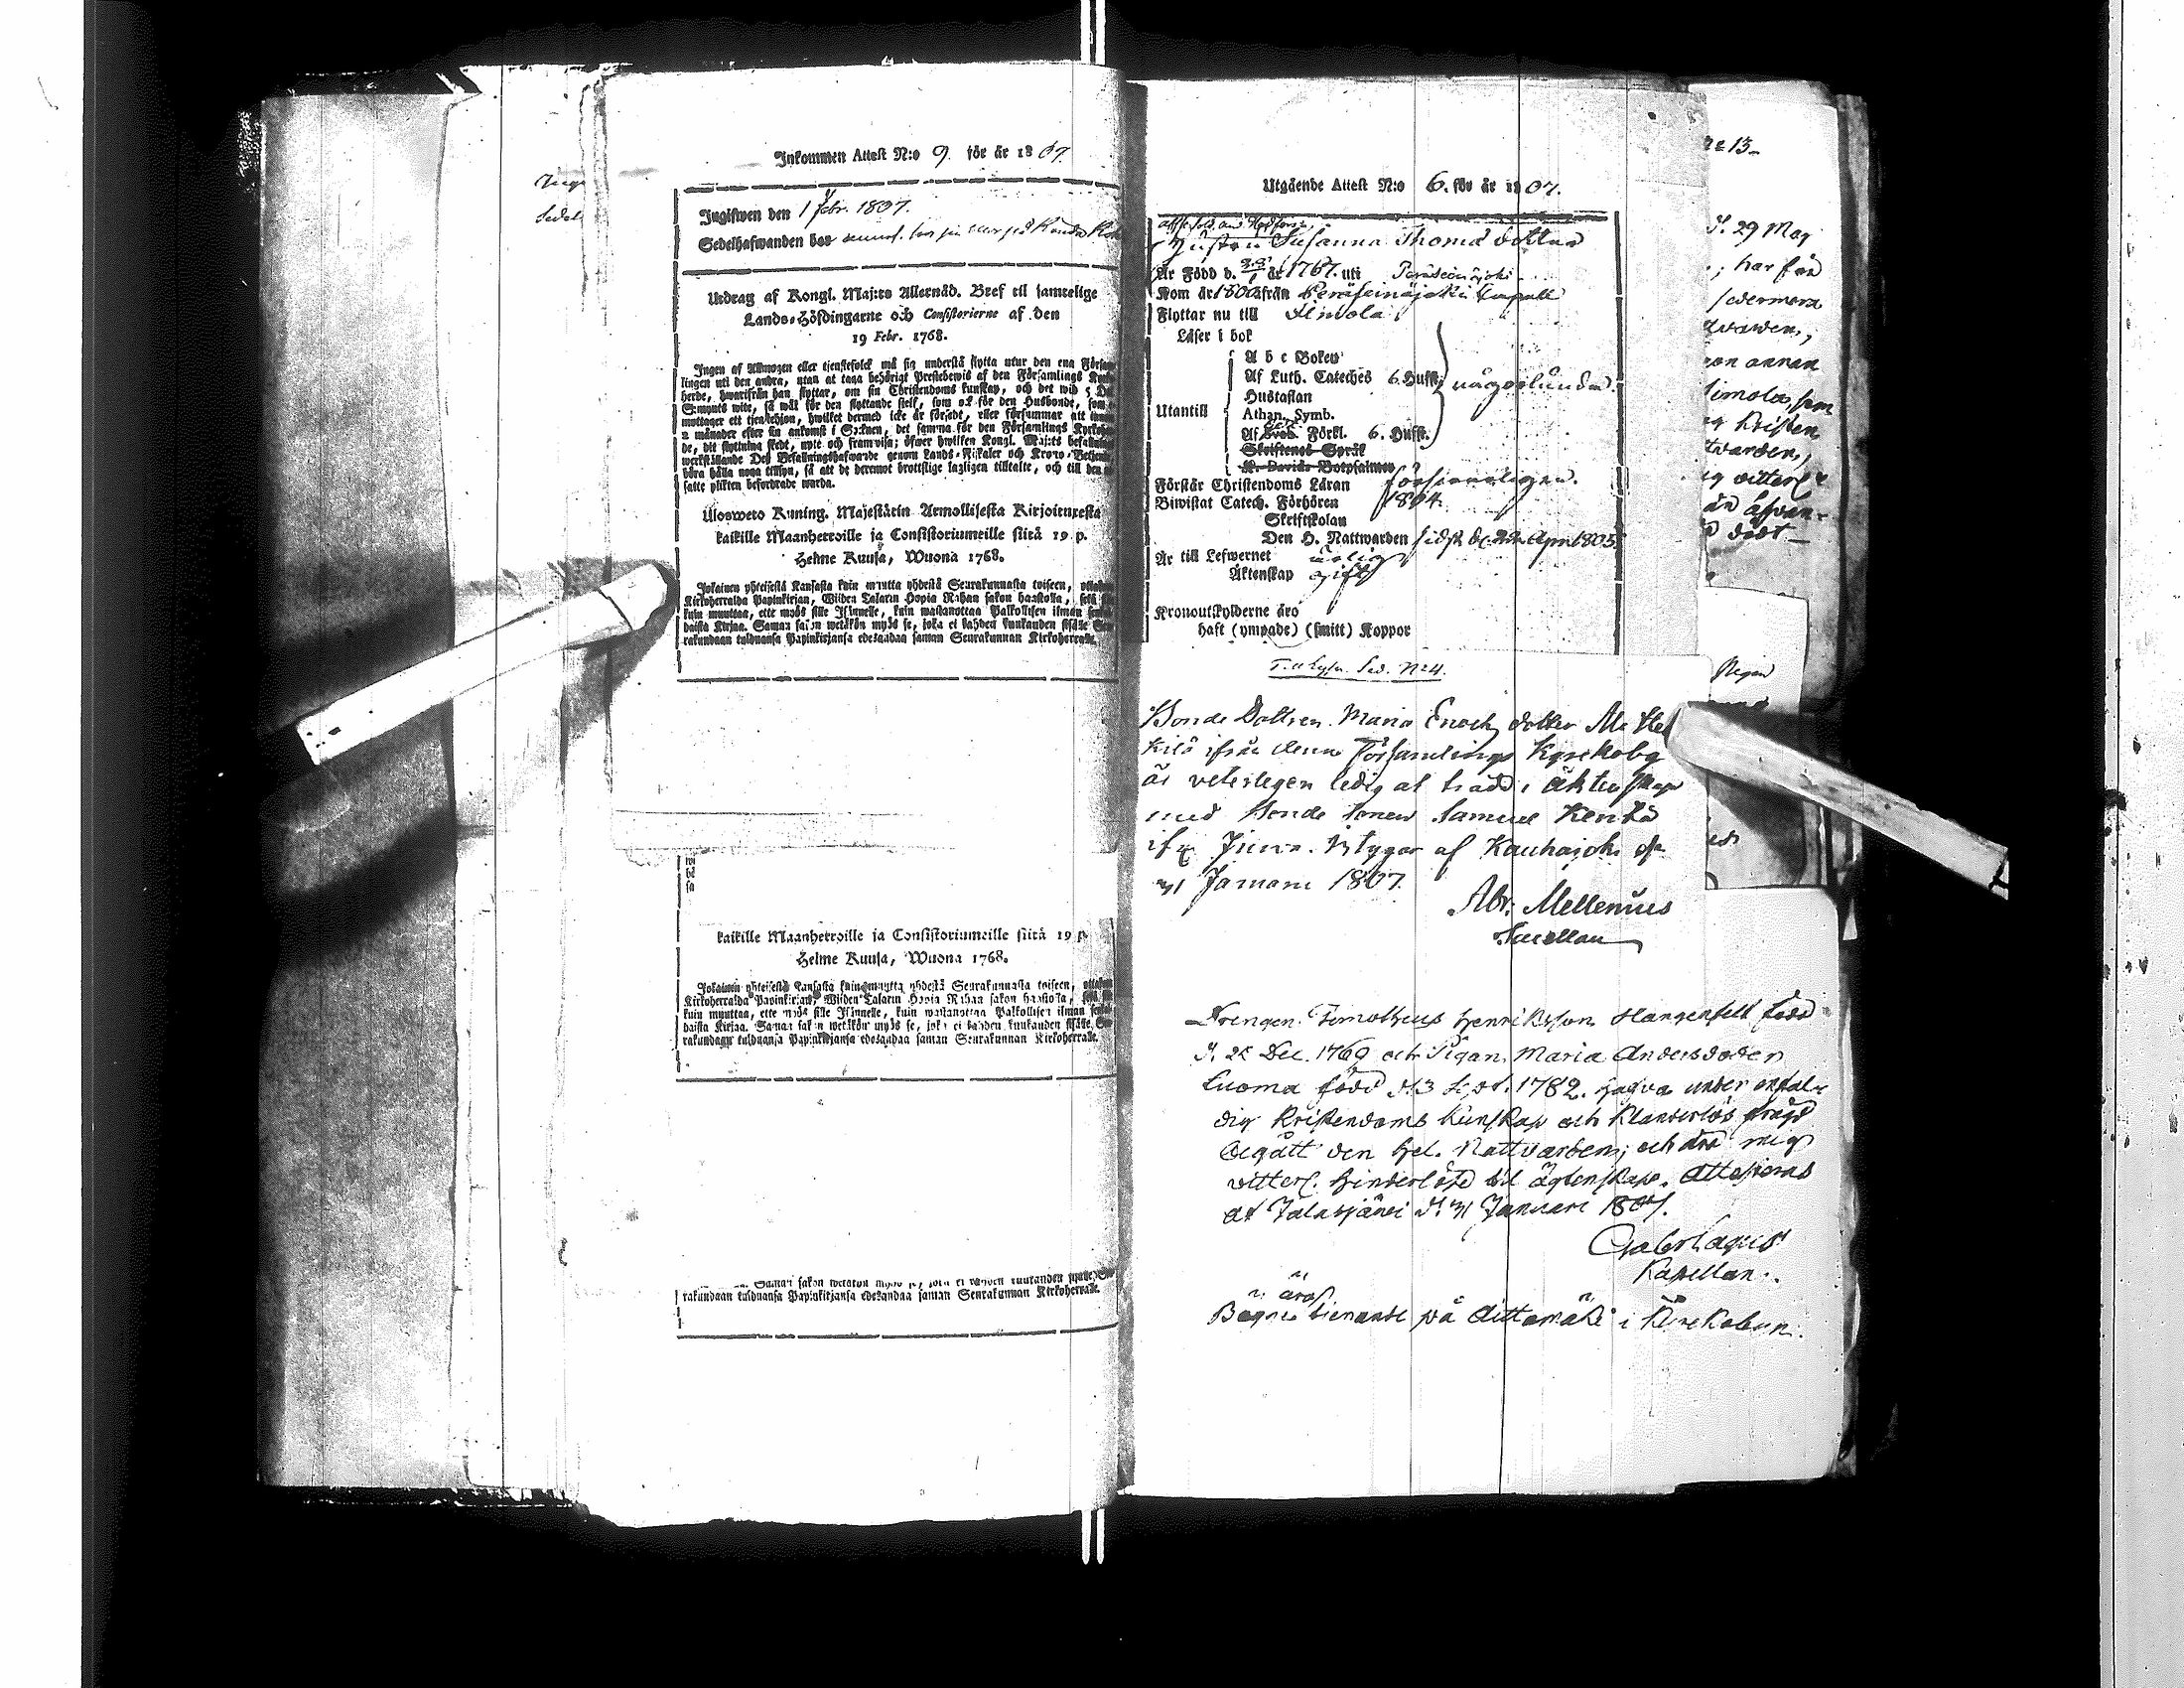 Inkommen Attest N:o 9. för år 1807.
Ingifwen den 1 febr. 1807.
Sedelhafwanden har
Utdrag af Kongl. Maj:ts Allernåd. Bref til samtelige
Lands-Höfdingarne och Consistorierne af den
19 Febr. 1768.
Ingen af Allmogen eller tjenstefolck må sig understå flytta utur den ena Försam
lingen uti den andra, utan at taga behörigt Prestebewis af den Församlings Kyrko
herde, hwarifrån han flyttar, om sin Christendoms kunskap, och det wid 5 Dal
S:mynts wite, så wäl för den flyttande sielf, som ock för den Husbonde, som
mottager ett tjenstehjon, hwilket dermed icke är försedt, eller försummar att innom
2 månader efter sin ankomst i Socknen, det samma för den Församlings Kyrkoher
de, dit flyttning skedt, nyte och framwisa; öfwer hwilken Kongl. Maj:ts befallning
werkställande Des Befallningshafwande genom Lands-Fiskaler och Krono-Betjente
böra hålla noga tillsyn, så att de deremot brottslige lagligen tilltalte, och till den ut
satte plikten befordrade warda.
Ulosweto Kuning. Majestätin Armollisesta Kirjoituxesta
kaikille Maanherroille ja Consistoriumeille siitä 19 p.
Helme Kuusa, Wuona 1768.
Jokainen yhteisestä Kansasta kuin muutta yhdestä Seurakunnasta toiseen, ottakan
Kirkoherralda Papinkirjan, Wijden Talarin Hopia Rahan sakon haastolla, sekä sille
kuin muuttaa, ette myös sille Isännelle, kuin wastanottaa Palkollisen ilman sencal
daista Kirjaa. Saman sakon wetäkön myös se, joka ei kahden kuukauden sisälle Seu
rakundaan tulduansa Papinkirjansa edesandaa saman Seurakunnan Kirkoherralle.
kaikille Maanherroille ja Consistoriumeille siitä 19 p.
Helme Kuusa, Wuona 1768.
Jokainen yhteisestä Kansasta kuin muutta yhdestä Seurakunnasta toiseen, ottakan
Kirkoherralda Papinkirjan, Wijden Talarin Hopia Rahan sakon haastolla, sekä sille
kuin muuttaa, ette myös sille Isännelle, kuin wastanottaa Palkollisen ilman sencal
daista Kirjaa. Saman sakon wetäkön myös se, joka ei kahden kuukauden sisälle Seu
rakundaan tulduansa Papinkirjansa edesandaa saman Seurakunnan Kirkoherralle.
Saman sakon wetäkön myös se, joka ei kahden kuukauden sisälle Seu
rakundaan tulduansa Papinkirjansa edesandaa saman Seurakunnan Kirkoherralle.
Utgående Attest N:o 6. för år 1807.
Hustru Susanna Thomä dotter
Är Född d. år 1767. uti Peräseinäjoki
Kom år 1800 från Peräseinäjoki Capell
Flyttar nu till Ilmola
Läser i bok
A b c Boken
Af Luth. Cateches 6. Hufst.
Hustaflan
någorlunda.
Utantill
Athan. Symb.
Af Förkl. 6. Hufst.
Skriftenes Språk
K. Davids Botpsalmer
Förstår Christendoms Läran försvarligen.
Biwistat Catech. Förhören 1804.
Skriftskolan
Den H. Nattwarden sidst d. 22 Apr. 1805.
Är till Lefwernet ärlig
Äktenskap gift
Kronoutskylderne äro
haft (ympade) (smitt) Koppor
Sed. No 4.
Bonde Dottren Maria Enochs dotter
ifrån denna Församlings Kyrkoby
är veterlegen ledig at träda i äktenskap
med Bonde Sonen Samuel Kentta
Intygar af Kauhajoki d.
31 Januarii 1807.
Abr. Mellenius
Sacellan
Drengen Timotheus Henriksson Hangenfelt född
d. 25 Dec. 1769 och Pigan Maria Andersdotter
Luoma född d. 3 Sept. 1782. hafva under enfal
dig Kristendoms kunskap och klanderlös frägd
begått den Hel. Nattvarden, och äro mig
vitterl. hinderlöse til ägtenskap. Attesteras
at Jalasjärvi d. 31 Januari 1807.
Gabr Lagus
Kapellan.
äro
Bägge tienande på Aittamäki i Kyrkobyn.
No 13_
d. 29 Maj
; har för
annan
Ilmola, som
Kristen